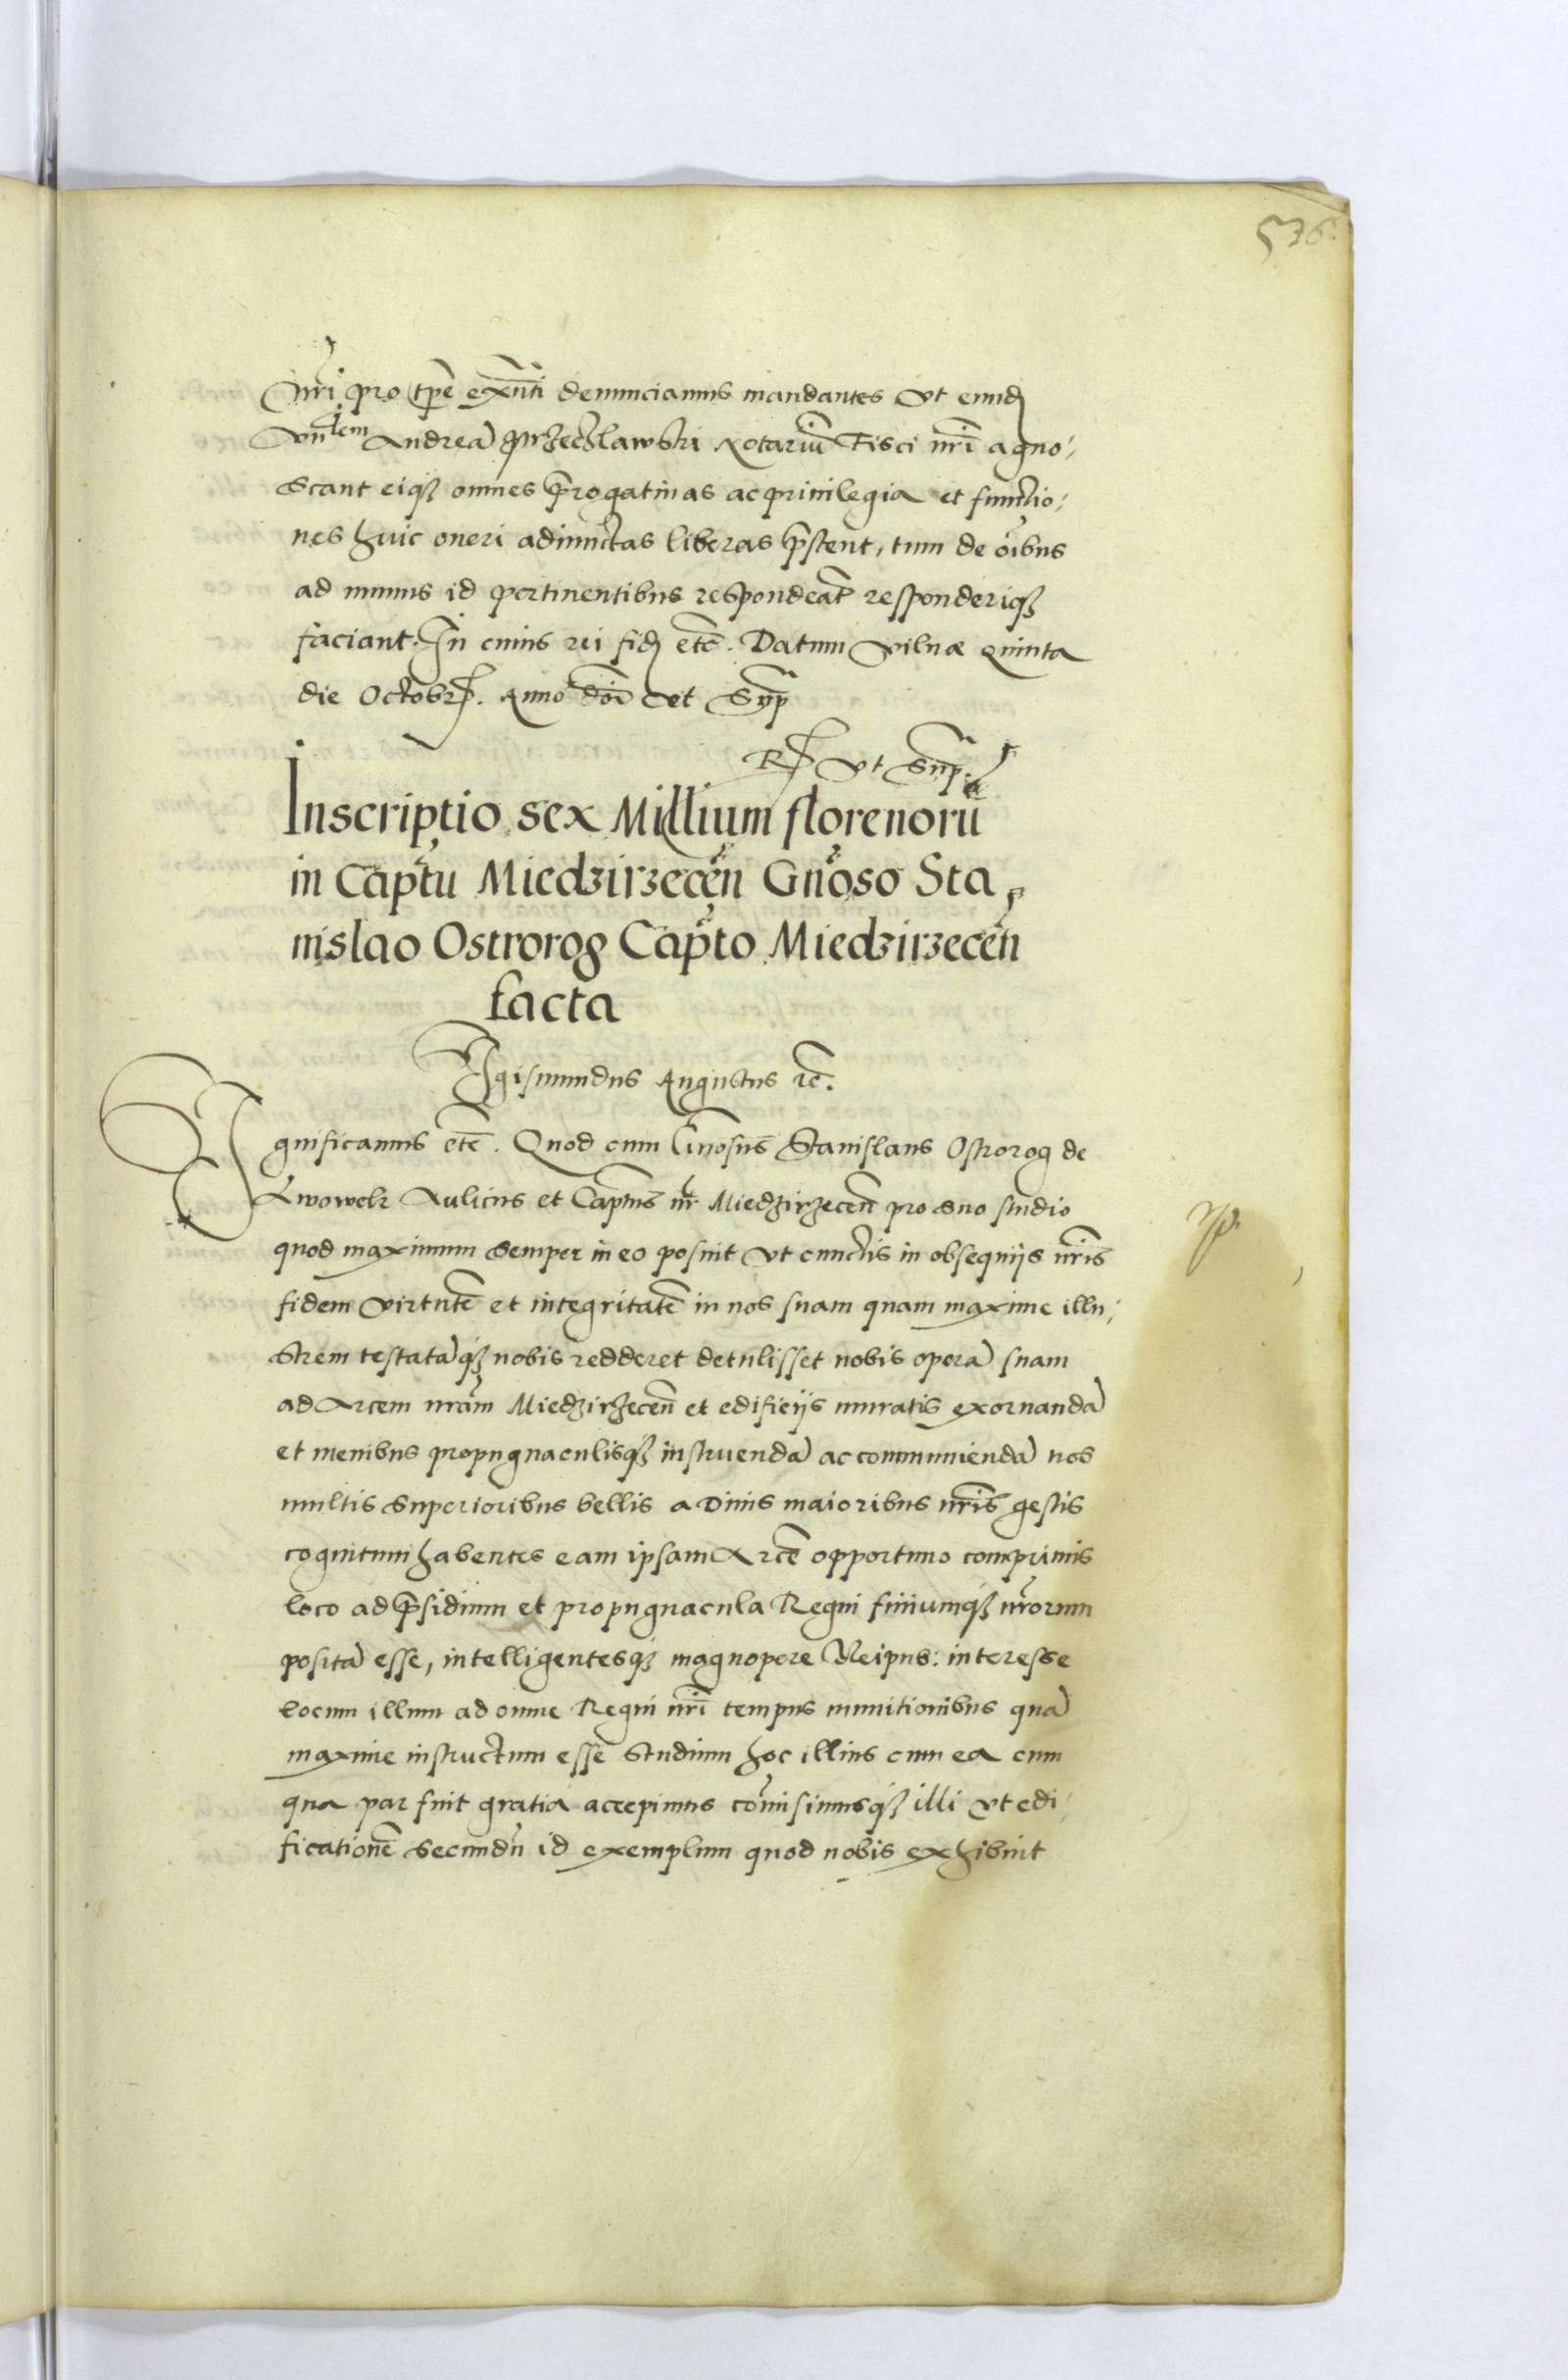 576.
nri pro tpe exnti denunciamus mandantes vt eund
Vnlem Andreā Przeczlawski Notariū Fisci nri agno,
scant eiqȝ omnes prerogatiuas ac priuilegia et functio,
nes huic oneri adiunctas liberas prestent, tum de oibus
ad munus id pertinentibus respondeat responderiqȝ
faciant. In cuius rei fid etc. Datum Vilnæ Quinta
die Octobr. Anno doi vt Sup
R vt Sup.
Inscriptio sex Millium florenorū
in Captu Miedzirzecen Gnoso Sta,
nislao Ostrorog Capto Miedzirzecen
facta
Sigismundus Augustus rc.
Significamus etc. Quod cum Gnosus Stanislaus Ostrorog de
Lwowek Aulicus et Captus nr Miedzirzecen pro suo studio
quod maximum semper in eo posuit vt cunctis in obsequijs nris
fidem virtutē et integritatē in nos suam quam maxime illu,
strem testatāqȝ nobis redderet detulisset nobis operā suam
ad Arcem nram Miedzirzecen et edificijs muratis exornandā
et menibus propugnaculisqȝ instruendā ac communiendā nos
multis superioribus bellis a Diuis maioribus nris gestis
cognitum habentes eam ipsam Arcē opportuno comprimis
loco ad presidium et propugnacula Regni finiumqȝ nrorum
positā esse, intelligentesqȝ magnopere Reipus: interesse
locum illum ad omne Regni nri tempus munitionibus quā
maxime instructum esse studium hoc illius cum ea cum
qua par fuit gratia accepimus comisimusqȝ illi vt edi,
ficationē secundū id exemplum quod nobis exhibuit